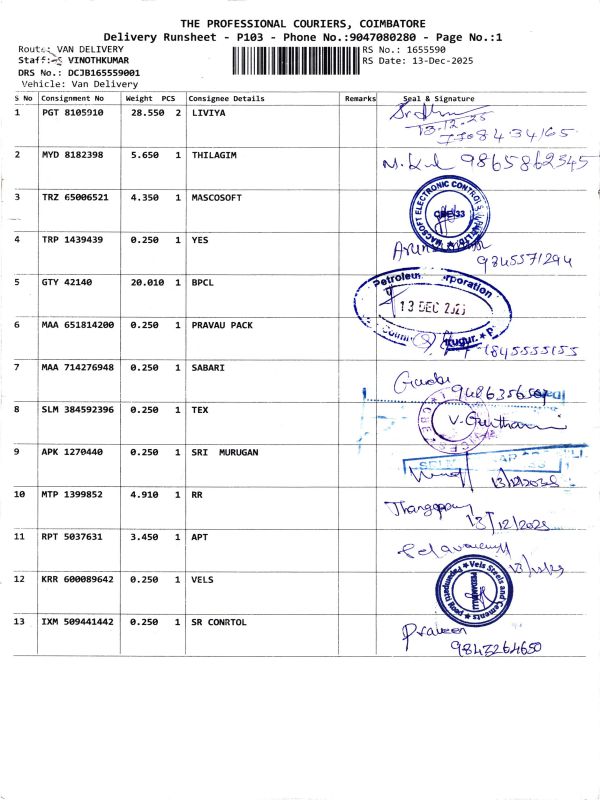 THE PROFESSIONAL COURIERS, COIMBATORE
Delivery Runsheet - P103 - Phone No.:9047080280 - Page No.:1
Route: VAN DELIVERY RS No.: 1655590
Staff: VINOTHKUMAR RS Date: 13-Dec-2025
DRS No.: DCJB165559001
Vehicle: Van Delivery
S No Consignment No Weight PCS Consignee Details Remarks Seal & Signature
1 PGT 8105910 28.550 2 LIVIYA
13-12-25
2 MYD 8182398 5.650 1 THILAGIM 9865862345
3 TRZ 65006521 4.350 1 MASCOSOFT
MACSOFT ELECTRONIC CONTROLS
4 TRP 1439439 0.250 1 YES
9845571294
5 GTY 42140 20.010 1 BPCL
Petroleum Corporation
13 DEC 2025
6 MAA 651814200 0.250 1 PRAVAU PACK
7 MAA 714276948 0.250 1 SABARI
8 SLM 384592396 0.250 1 TEX
9 APK 1270440 0.250 1 SRI MURUGAN
13/12/2025
10 MTP 1399852 4.910 1 RR
13/12/2025
11 RPT 5037631 3.450 1 APT
12 KRR 600089642 0.250 1 VELS
Vels Steels and Cements
13 IXM 509441442 0.250 1 SR CONRTOL
Praveen
9843264650